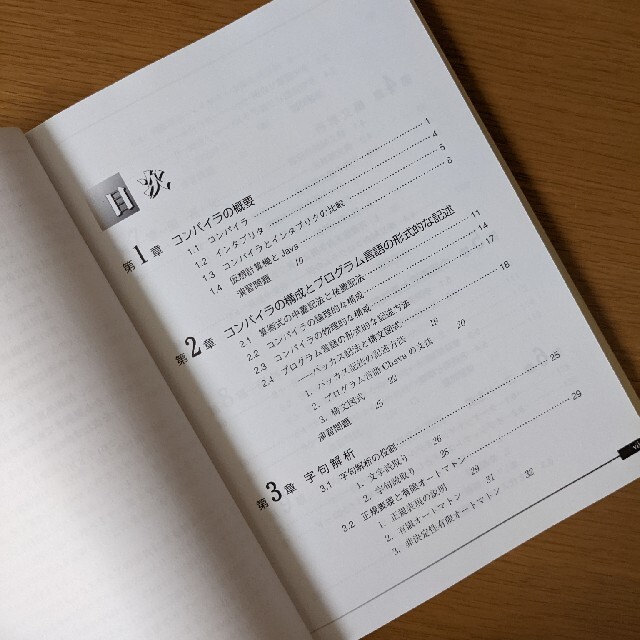 目次
第1章 コンパイラの概要
1.1 コンパイラ 1
1.2 インタプリタ 4
1.3 コンパイラとインタプリタの比較 5
1.4 仮想計算機と Java 6
演習問題 10
第2章 コンパイラの構成とプログラム言語の形式的な記述
2.1 算術式の中置記法と後置記法 11
2.2 コンパイラの論理的な構成 14
2.3 コンパイラの物理的な構成 17
2.4 プログラム言語の形式的な記述方法
——バッカス記法と構文図式 18
1. バッカス記法の記述方法 18
2. プログラム言語 の文法 20
3. 構文図式 22
演習問題 25
第3章 字句解析
3.1 字句解析の役割 25
1. 文字読取り 26
2. 字句読取り 28
3.2 正規表現と有限オートマトン 29
1. 正規表現の使用 29
2. 有限オートマトン 31
3. 非決定性有限オートマトン 32